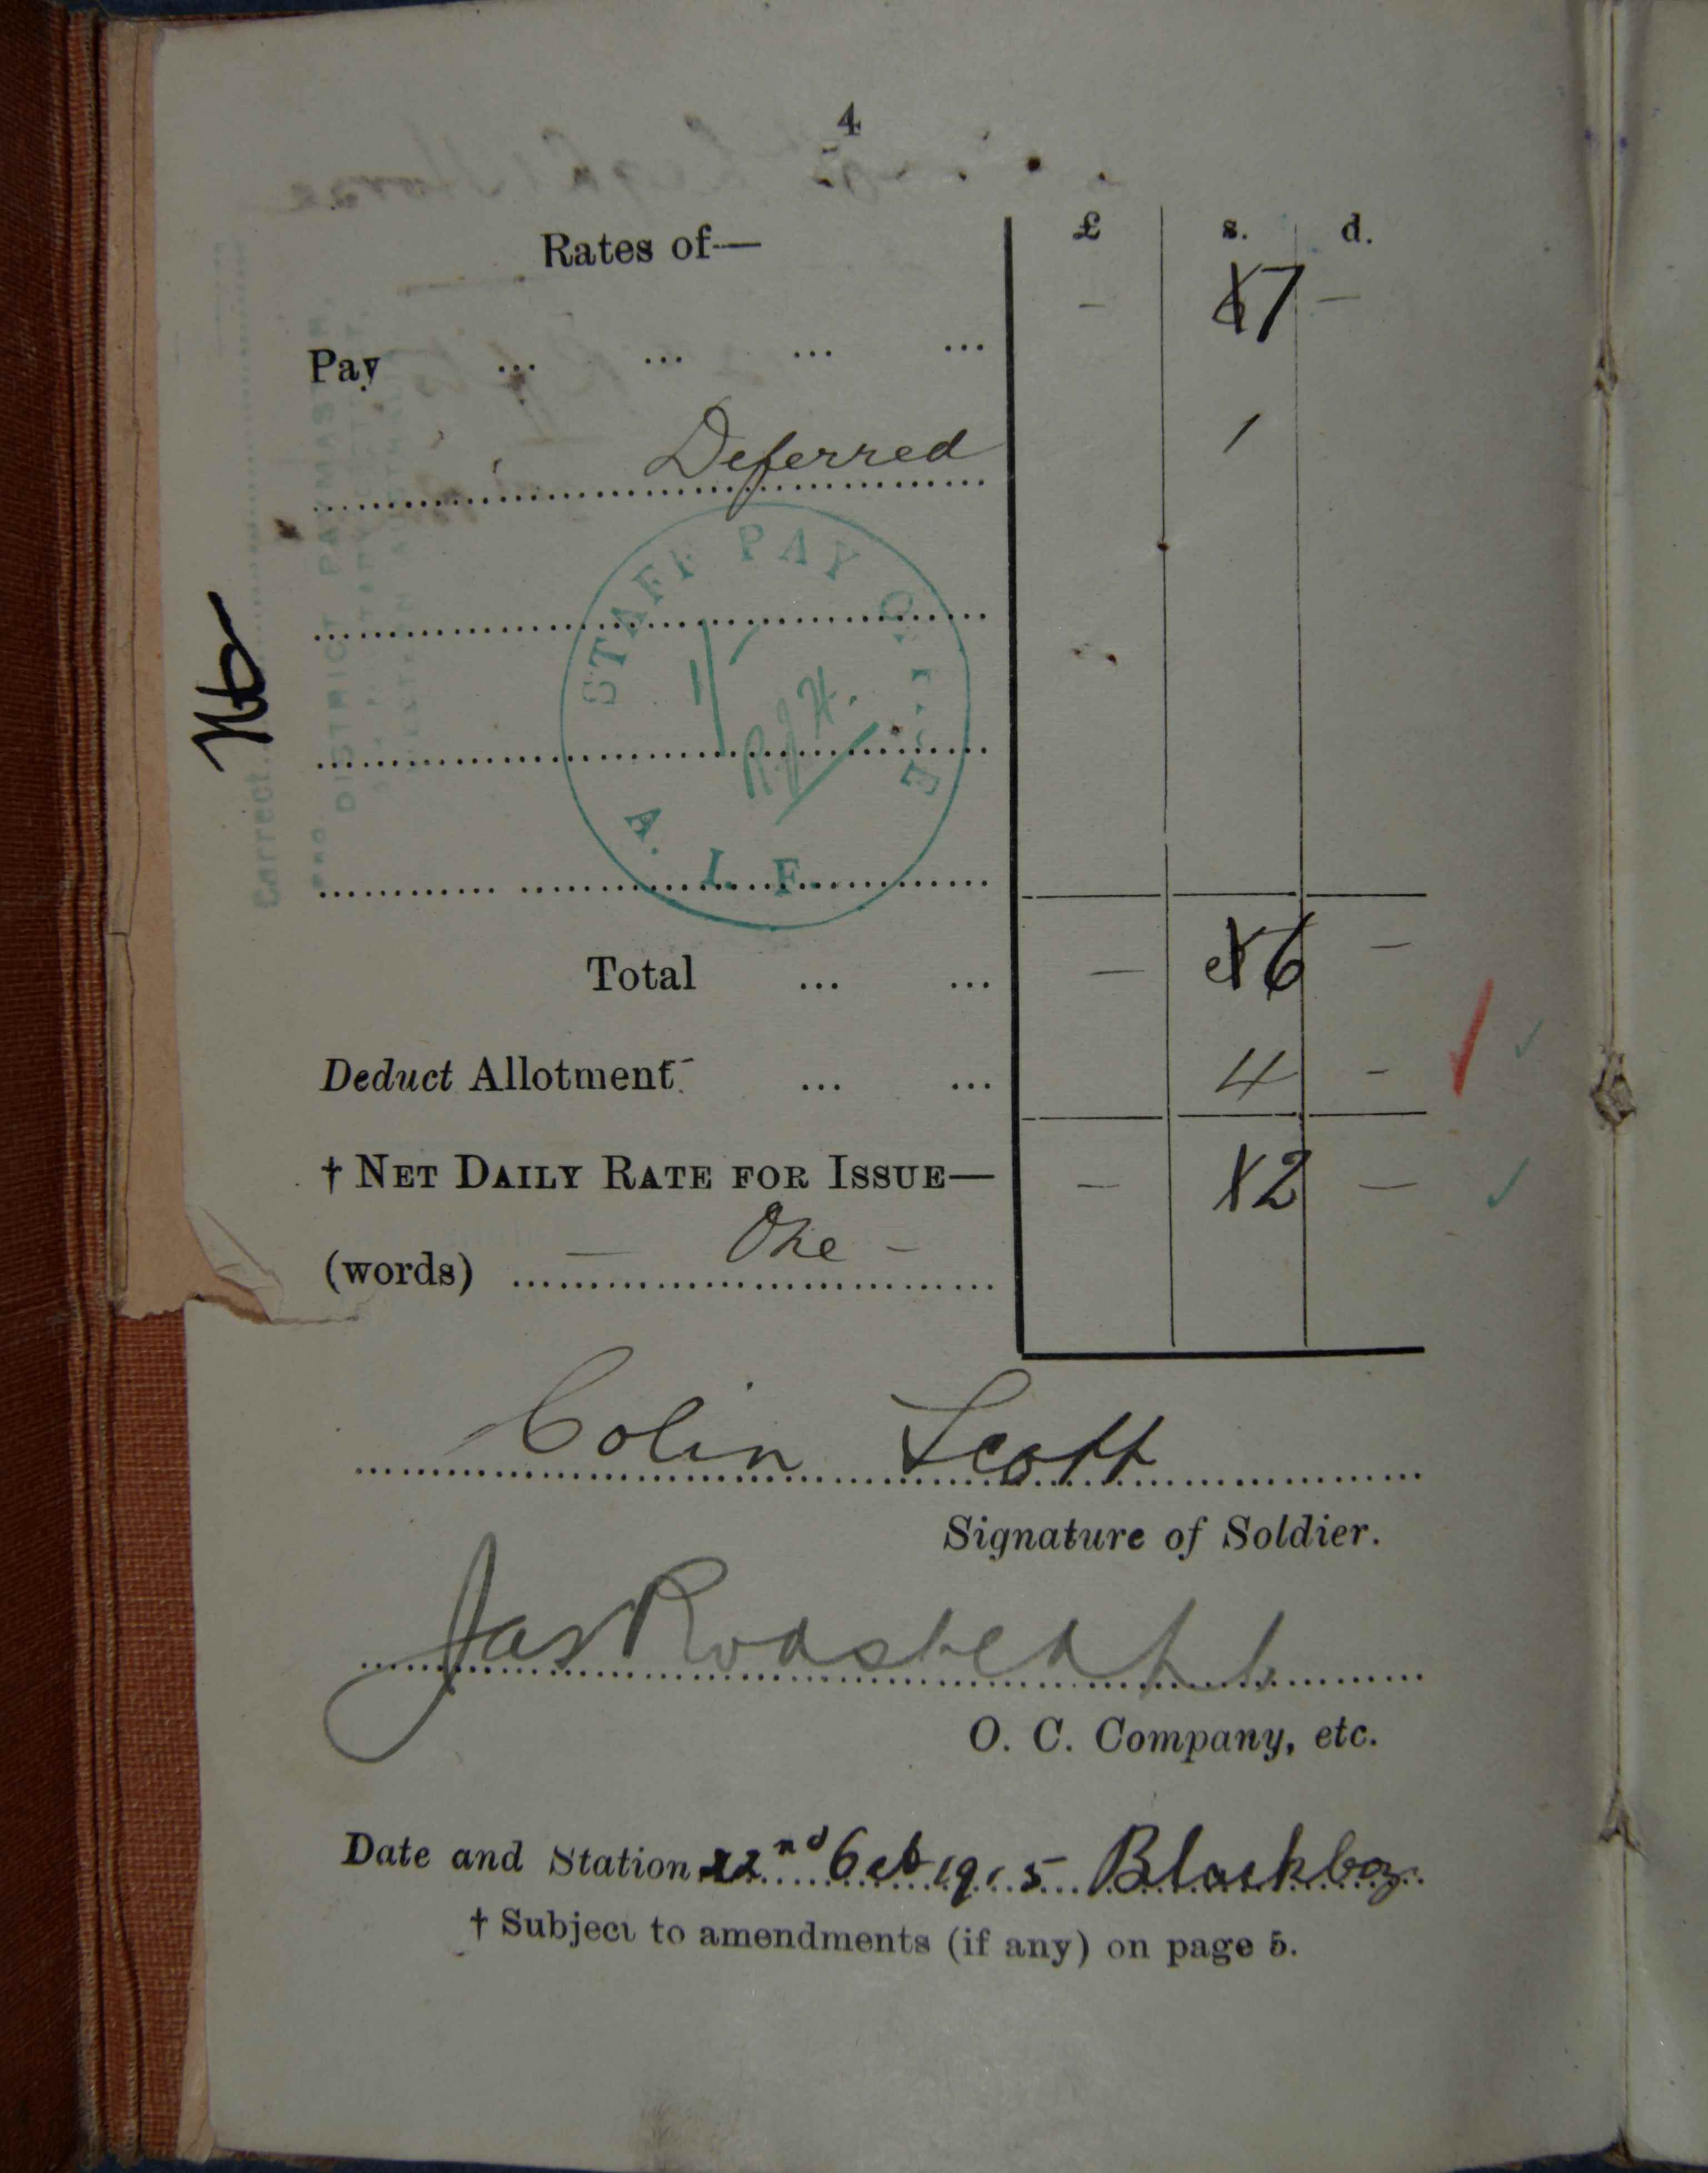 4
Rates of— £ s. d.
Pay ... ... ... ... – 7 —
Deferred 1
STAFF PAY OFFICE
A. I. F.
Total ... ... — 6 —
Deduct Allotment ... ... 4 -
† NET DAILY RATE FOR ISSUE— — 2 —
(words) — One –
Colin Scott
Signature of Soldier.
O. C. Company, etc.
Date and Station 22nd Feb 1915 Blackboy
† Subject to amendments (if any) on page 5.
Correct
DISTRICT PAYMASTER,